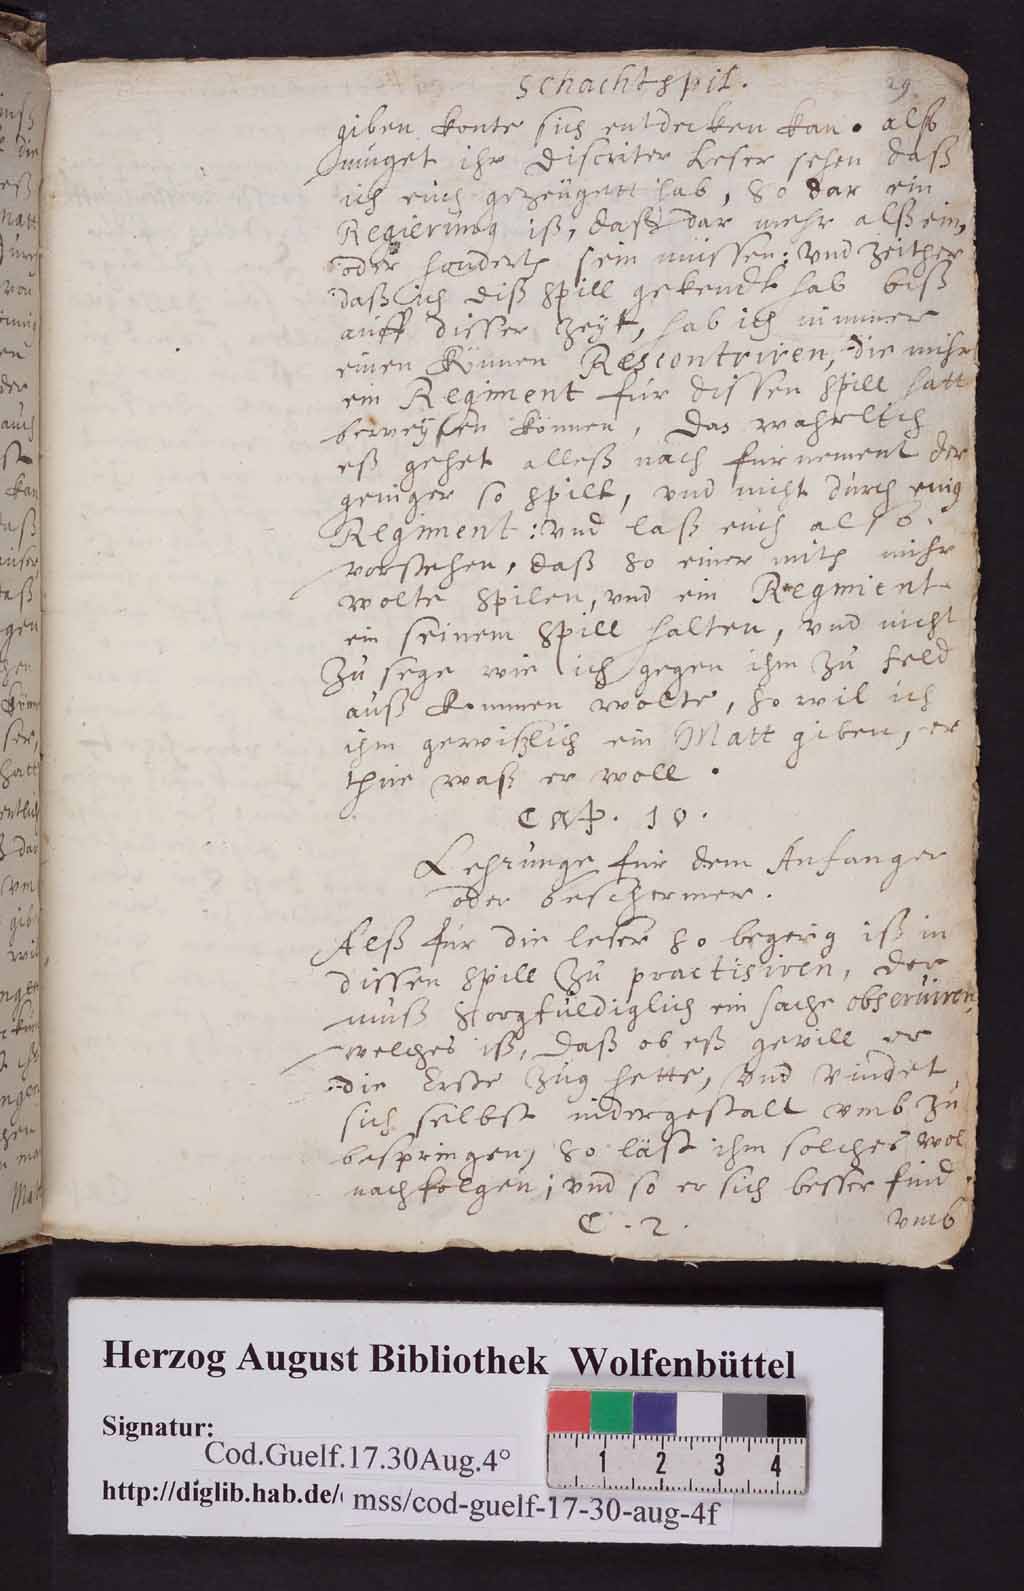 Schachtspil.
29.
giben konte sich entdecken kan. alsß
muget ihr discriter Leser sehen daß
ich euch gezeüget hab, so dar ein
Regierung iß, daß dar mehr alß ein,
oder hondert sein müssen: vnd zeither
daß ich diß spill gekendt hab biß
auff disser zeyt, hab ich nimmer
einen können Rescontriren, die mihr
ein Regiment für dissen spill hatt
beweysen können, das wahrlich
eß gehet alleß nach furnement der
geniger so spilt, vnd nicht durch enig
Regiment: vnd laß euch also
vorstehen, daß so einer mith mihr
wolte spilen, vnd ein Regmient
ein seinem spill halten, vnd nicht
zu sege wie ich gegen ihm zu feld
auß kommen wolte, so wil ich
ihm gewißlich ein Matt giben, er
thue waß er woll.
Cap. 10.
Lehrunge für dem Anfanger
oder beschermer.
Alß für die leser so begerig iß in
dissen spill zu practisiren, der
muß sorgfuldiglich ein sache obseruiren,
welches iß, daß ob eß gevill er
die Erste zug hette, vnd vindet
sich selbst indergestalt vmb zu
bespringen, so läst ihm solches wol
nachfolgen; vnd so er sich besser find
C . 2 .
vmb
Herzog August Bibliothek Wolfenbüttel
Signatur:
Cod.Guelf.17.30Aug.4°
http://diglib.hab.de/ mss/cod-guelf-17-30-aug-4f
1 2 3 4